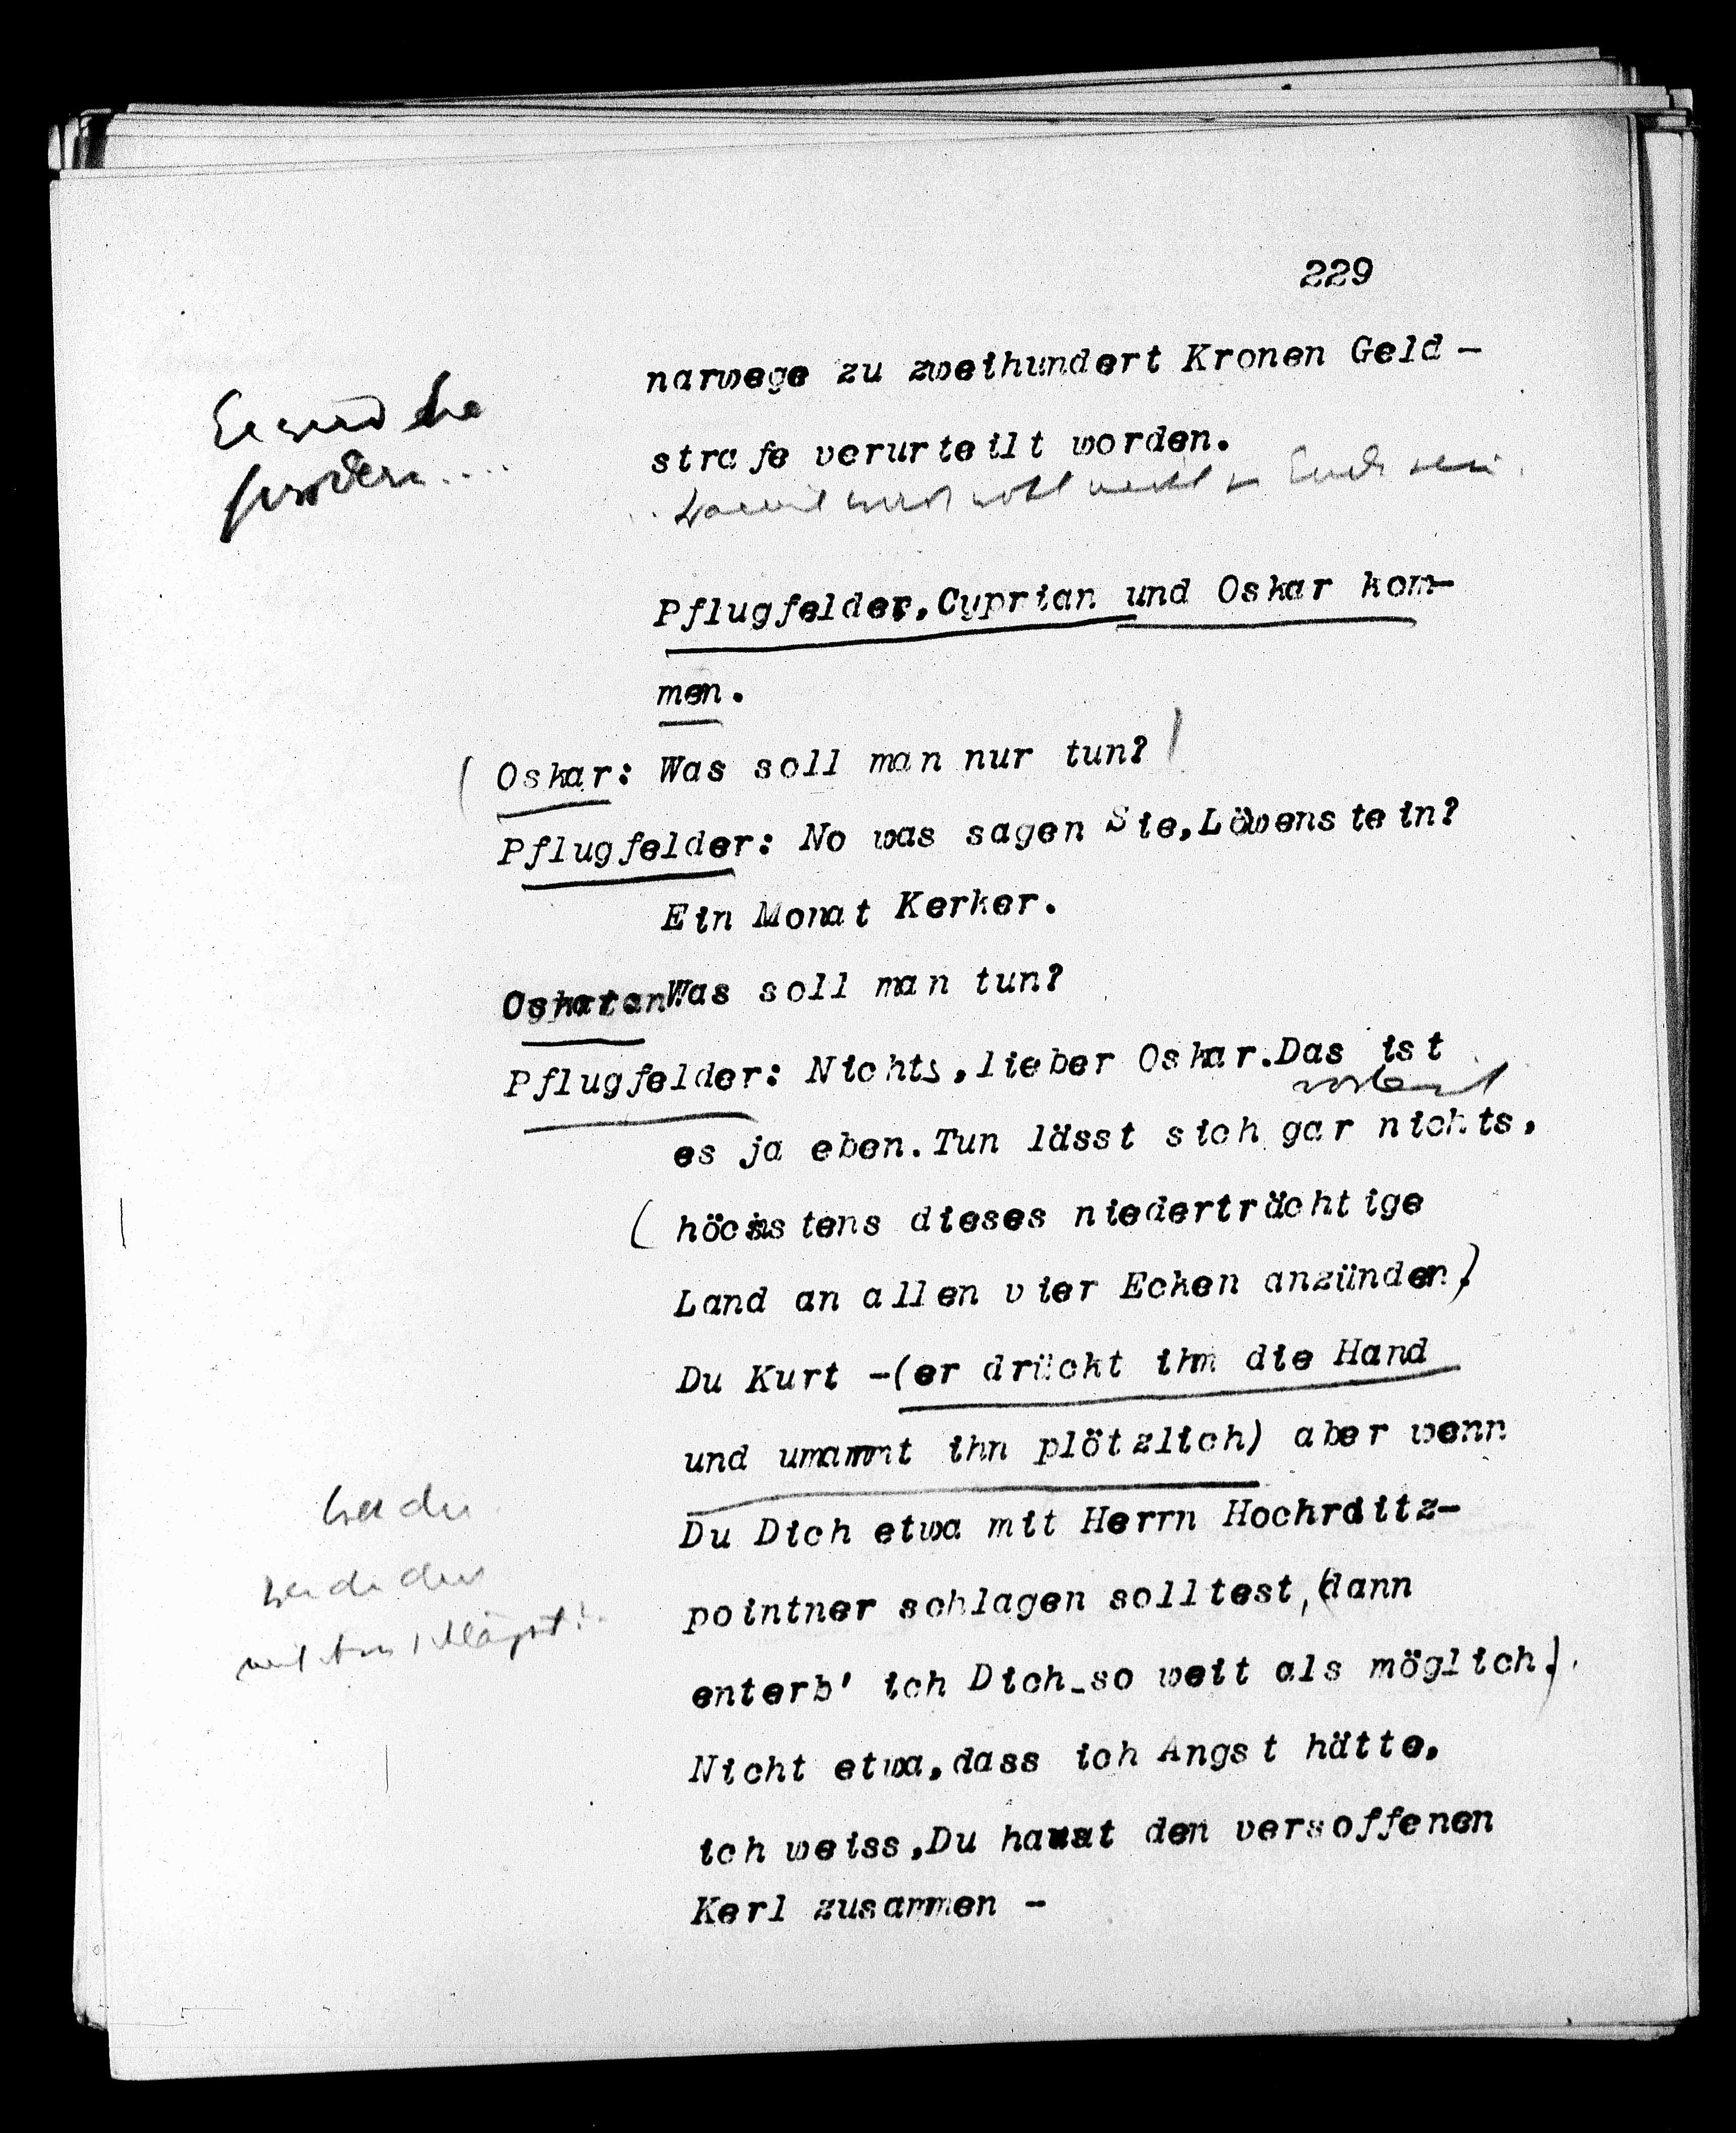 229
narwege zu zweihundert Kronen Geld-
strafe verurteilt worden.
Er wird Sie
fordern...
Damit wird's wohl nicht zu Ende sein.
Pflugfelder, Cyprian und Oskar kom-
men.
(Oskar: Was soll man nur tun?)
Pflugfelder: No was sagen Sie, Löwenstein?
Ein Monat Kerker.
Was soll man tun?
Pflugfelder: Nichts, lieber Oskar. Das ist
es ja eben. Tun lässt sich gar nichts,
(höchstens dieses niederträchtige
Land an allen vier Ecken anzünden.)
Du Kurt -(er drückt ihm die Hand
und umarmt ihn plötzlich) aber wenn
Du Dich etwa mit Herrn Hochroitz-
pointner schlagen solltest, (dann
enterb' ich Dich so weit als möglich.)
Nicht etwa, dass ich Angst hätte,
ich weiss, Du haust den versoffenen
Kerl zusammen -